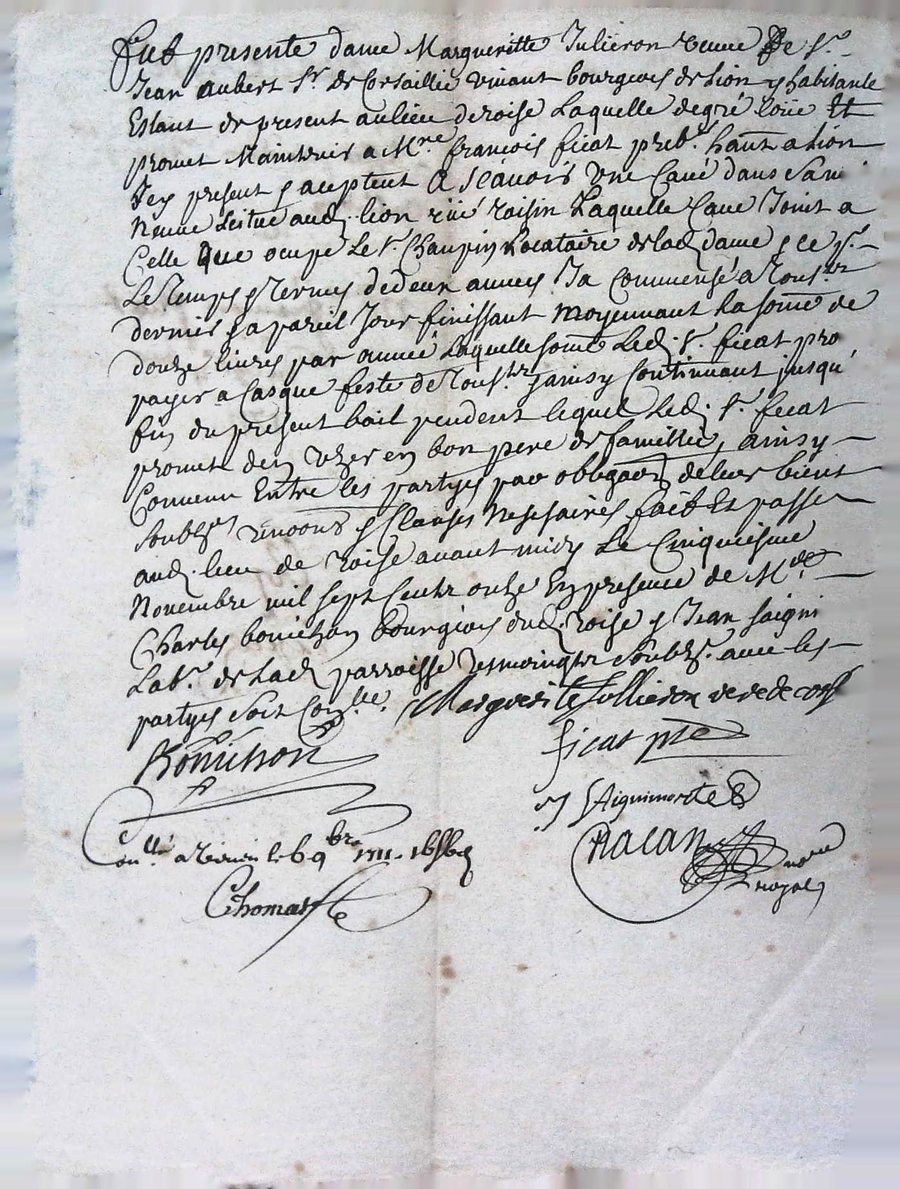 fut presente dame Margueritte Julieron veuve de Sr.
Jean aubert Sr. de Corsaillie vivant bourgeois de Lion y habitante
Estant de present au lieu de roise Laquelle de gré loüe Et
promet Maintenir a Mre francois ficat preb. hant. a Lion
Icy present & aceptent A scavoir Une Cave dans sa m
neuve scitue aud. lion rüe raisin Laquelle Cave Joint a
Celle que ocupe Le Sr. Chaupin Locataire de lad. dame & ce pr.
Le temps & termes de deux annees Ja Commensé a Tousts
dernier & a pareil Jour finissant moyennant La some de
douze livres par année Laquelle some Led. Sr. ficat pro
payer a Casque feste de Tousts & ainsy Continuant jusqu'
fin du present bail pendent lequel Led. Sr. ficat
promet den Uzer en bon pere de famillie, ainsy
Convenu Entre les partyes par obligaon de leur biens
soubzons renoons & Clauses Nessaires fait Et passe
aud. lieu de roise avant midy Le Cinquiesme
Novembre mil sept Centz onze En presence de Mre
Charles bonichon bourgiois dud. roise & Jean saigni
Labr. de Lad. parroisse tesmoingtz soubzs. avec les
partyes sont Conlle. Marguerite Jullieron veve de cors
Bonichon ficat ptre
J SAiguimorte
Conllé a le 6 9bre 1711
Racan notre royal
Thomas